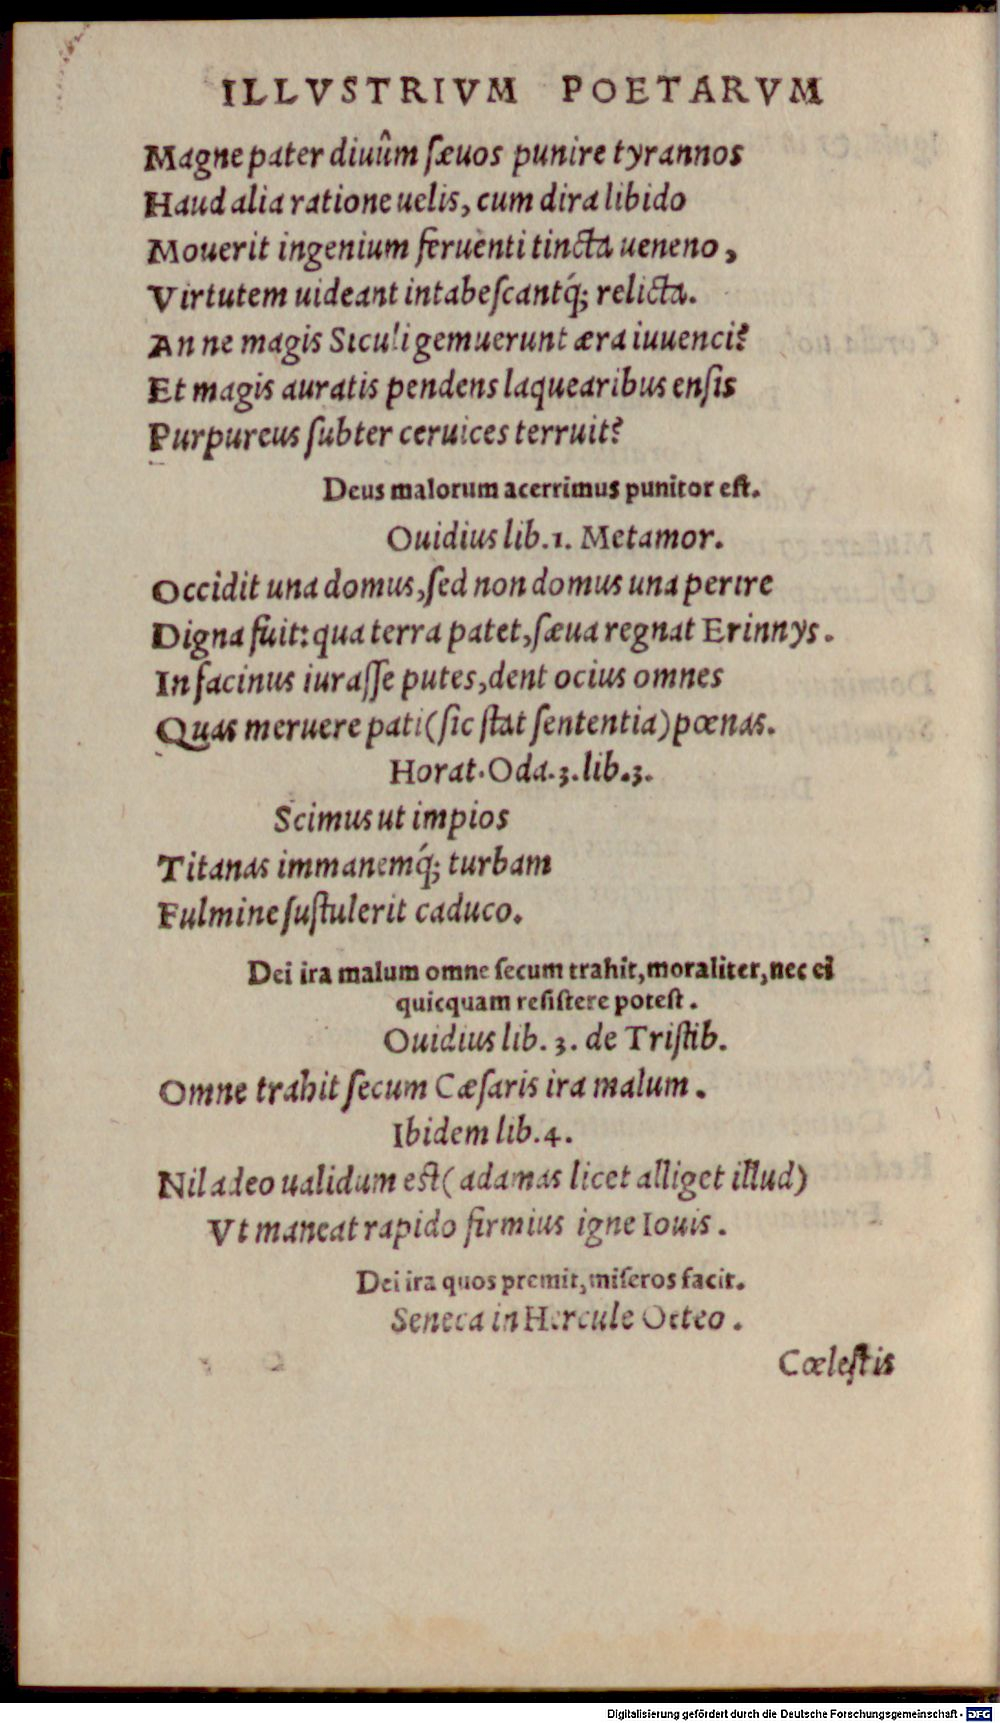 ILLVSTRIVM POETARVM
Magne pater diuûm ſæuos punire tyrannos
Haud alia ratione uelis, cum dira libido
Mouerit ingenium feruenti tincta ueneno,
Virtutem uideant intabeſcantq́; relicta.
An ne magis Siculi gemuerunt æra iuuenci?
Et magis auratis pendens laquearibus enſis
Purpureus ſubter ceruices terruit?
Deus malorum acerrimus punitor eſt.
Ouidius lib.1. Metamor.
Occidit una domus, ſed non domus una perire
Digna fuit: qua terra patet, ſæua regnat Erinnys.
In facinus iuraſſe putes, dent ocius omnes
Quas meruere pati (ſic ſtat ſententia) pœnas.
Horat. Oda.3.lib.3.
Scimus ut impios
Titanas immanemq́; turbam
Fulmine ſuſtulerit caduco.
Dei ira malum omne ſecum trahit, moraliter, nec ei
quicquam reſiſtere poteſt.
Ouidius lib. 3. de Triſtib.
Omne trahit ſecum Cæſaris ira malum.
Ibidem lib.4.
Nil adeo ualidum eſt (adamas licet alliget illud)
Vt maneat rapido firmius igne Iouis.
Dei ira quos premit, miſeros facit.
Seneca in Hercule Oeteo.
Cœleſtis
Digitalisierung gefördert durch die Deutsche Forschungsgemeinschaft - DFG